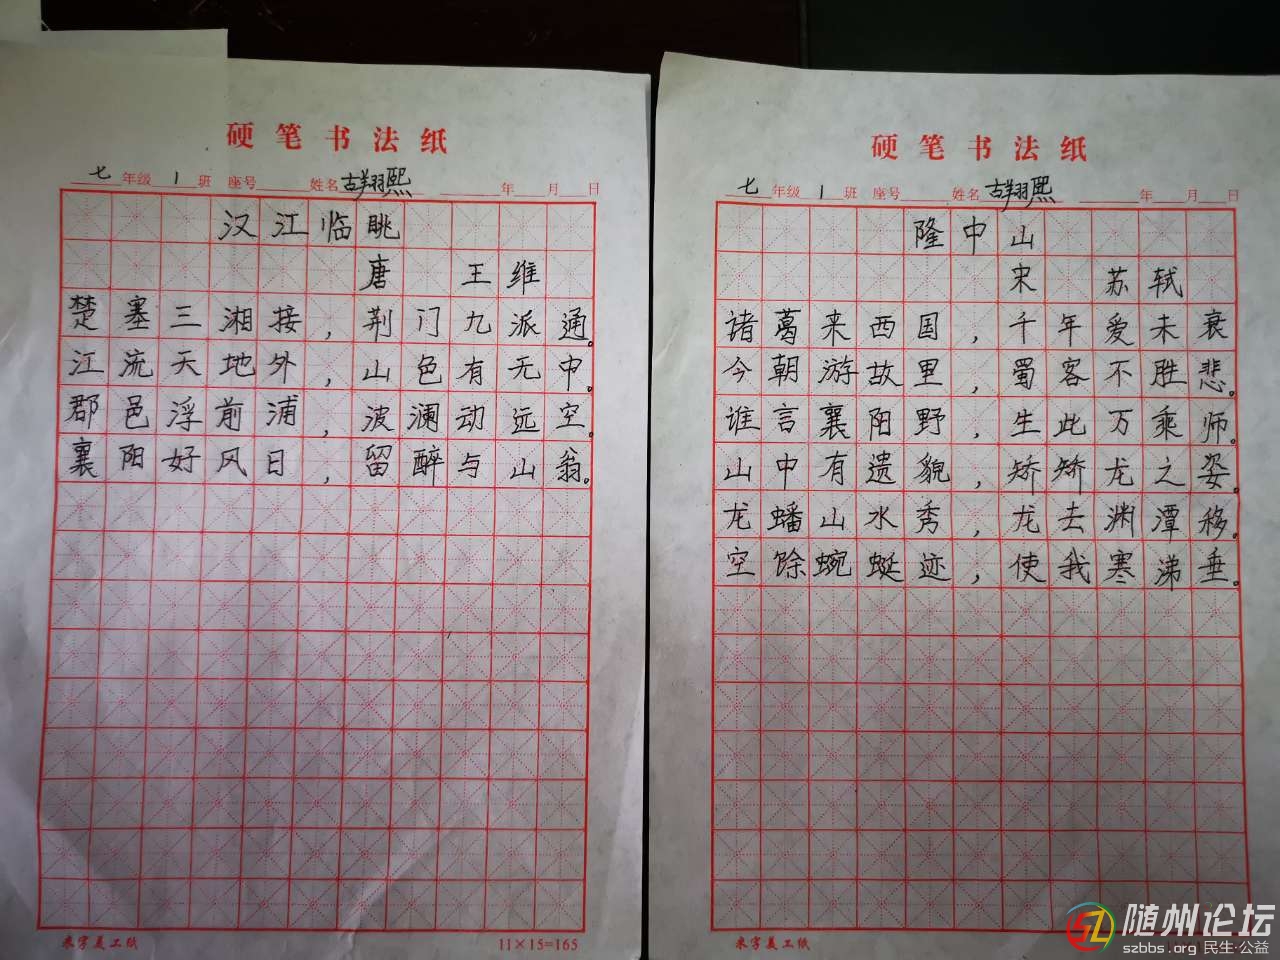 硬笔书法纸
七年级 1班 座号 姓名 古翔熙 年 月 日
汉江临眺
唐 王维
楚塞三湘接,荆门九派通。
江流天地外,山色有无中。
郡邑浮前浦,波澜动远空。
襄阳好风日,留醉与山翁。
米字美工纸
11×15=165
硬笔书法纸
七年级 1班 座号 姓名 古翔熙 年 月 日
隆中山
宋 苏轼
诸葛来西国,千年爱未衰
今朝游故里,蜀客不胜悲。
谁言襄阳野,生此万乘师。
山中有遗貌,矫矫龙之姿。
龙蟠山水秀,龙去渊潭移。
空馀蜿蜒迹,使我寒涕垂。
米字美工纸
随州论坛
szbbs.org 民生·公益